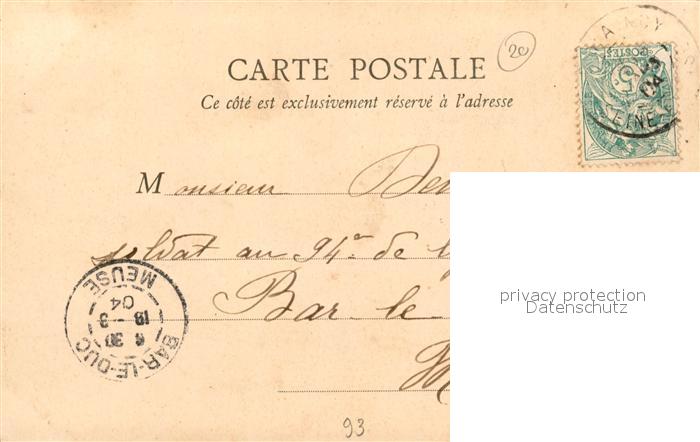 20
CARTE POSTALE
Ce côté est exclusivement réservé à l'adresse
POSTES
5
EINE
Monsieur
soldat au 94e de
Bar-le
M
privacy protection
Datenschutz
BAR-LE-DUC
6 30
18 - 3
04
MEUSE
93